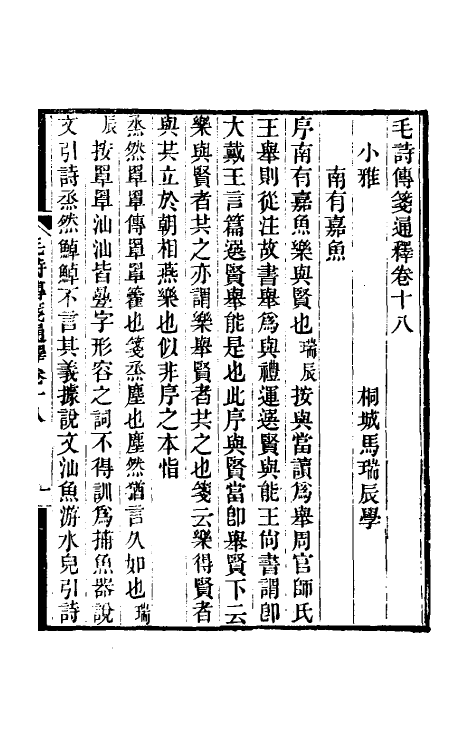 毛詩傳箋通釋卷十八
小雅　桐城馬瑞辰學
南有嘉魚
序南有嘉魚樂與賢也瑞辰按與當讀爲舉周官師氏
王舉則從注故書舉爲與禮運選賢與能王尙書謂卽
大戴王言篇選賢舉能是也此序與賢當卽舉賢下云
樂與賢者共之亦謂樂舉賢者共之也箋云樂得賢者
與共立於朝相燕樂也似非序之本恉
烝然罩罩傳罩罩籗也箋烝塵也塵然猶言久如也瑞
辰按罩罩汕汕皆疊字形容之詞不得訓爲捕魚器說
文引詩烝然鯙鯙不言其義據說文汕魚游水皃引詩
毛詩傳箋通釋卷十八　一